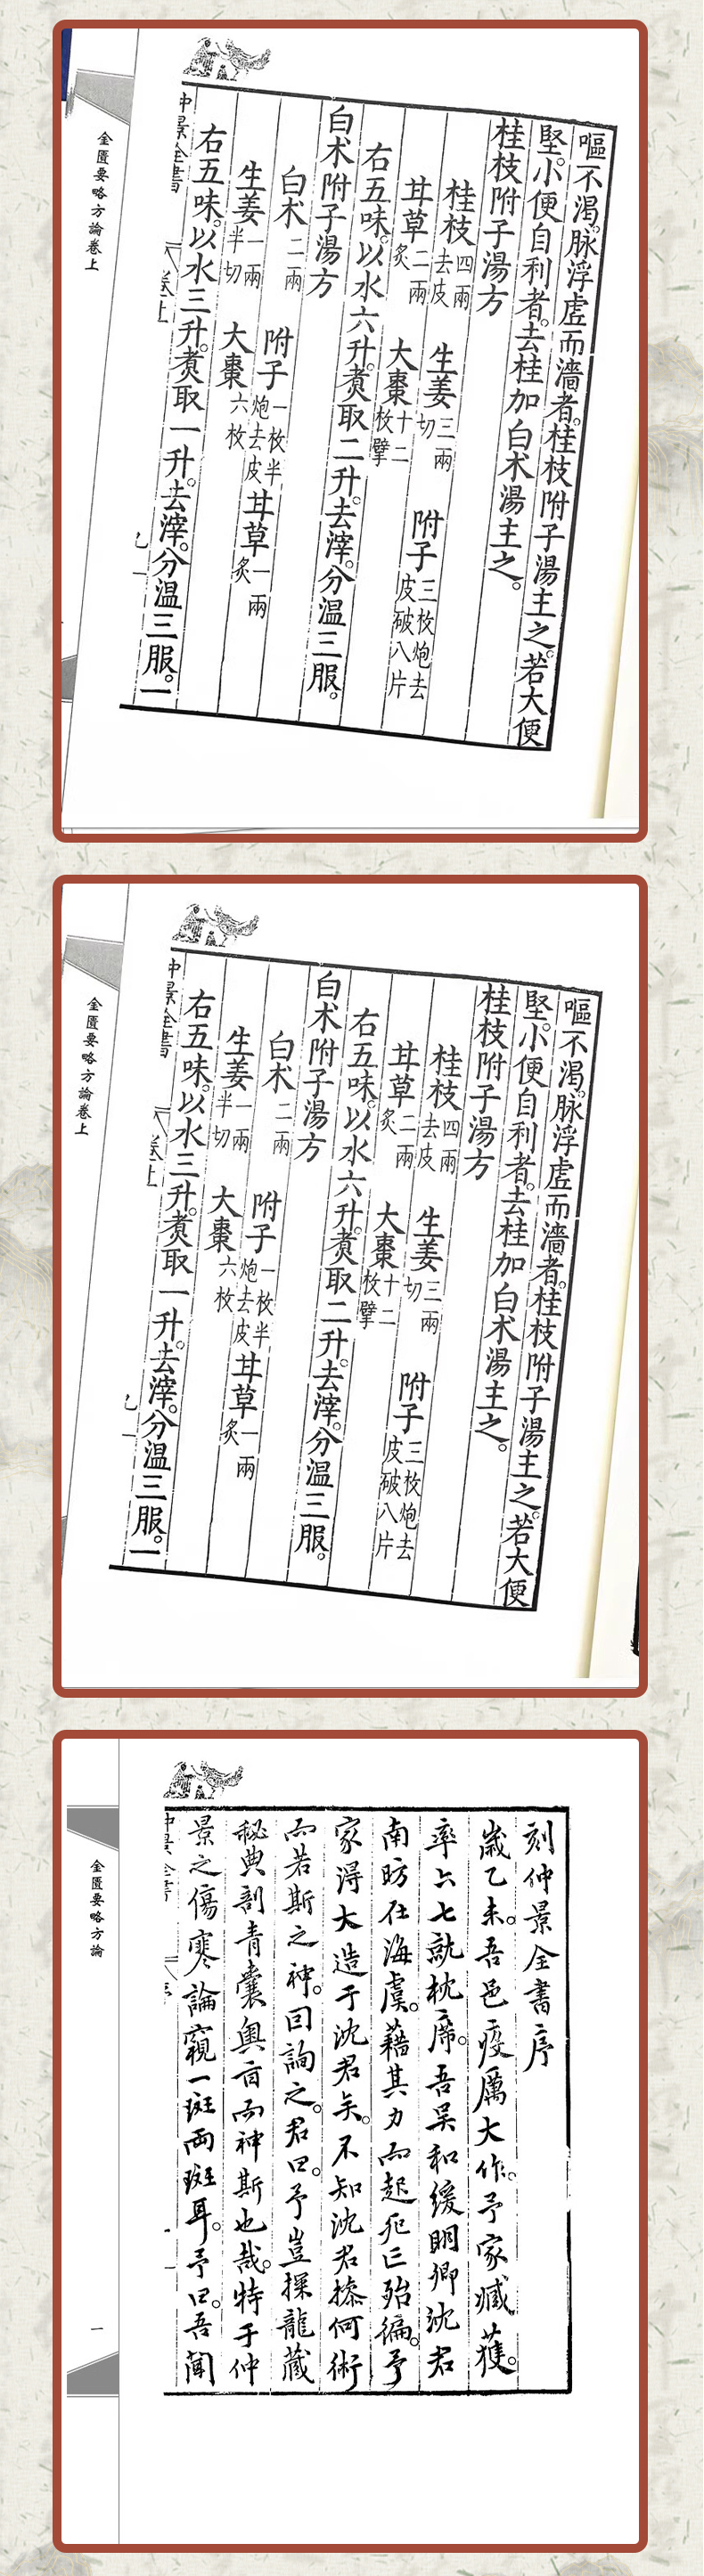 嘔不渴。脉浮虛而濇者。桂枝附子湯主之。若大便
堅。小便自利者。去桂加白术湯主之。
桂枝附子湯方
桂枝四兩去皮 生姜三兩切 附子三枚炮去皮破八片
甘草二兩炙 大棗十二枚擘
右五味。以水六升。煑取二升。去滓。分溫三服。
白术附子湯方
白术二兩 附子一枚半炮去皮 甘草一兩炙
生姜一兩半切 大棗六枚
右五味。以水三升。煑取一升。去滓。分溫三服。一
仲景全書 卷上
金匱要略方論卷上
嘔不渴。脉浮虛而濇者。桂枝附子湯主之。若大便
堅。小便自利者。去桂加白术湯主之。
桂枝附子湯方
桂枝四兩去皮 生姜三兩切 附子三枚炮去皮破八片
甘草二兩炙 大棗十二枚擘
右五味。以水六升。煑取二升。去滓。分溫三服。
白术附子湯方
白术二兩 附子一枚半炮去皮 甘草一兩炙
生姜一兩半切 大棗六枚
右五味。以水三升。煑取一升。去滓。分溫三服。一
仲景全書 卷上
金匱要略方論卷上
刻仲景全書序
歲乙未。吾邑疫厲大作。予家臧獲。
率六七就枕席。吾吴和緩明卿沈君
南昉在海虞。藉其力而起死亡殆徧。予
家得大造于沈君矣。不知沈君操何術
而若斯之神。囙詢之。君曰。予豈探龍藏
秘典剖青囊奥旨而神斯也哉。特于仲
景之傷寒論窺一斑兩斑耳。予曰。吾聞
仲景全書 序
金匱要略方論
一